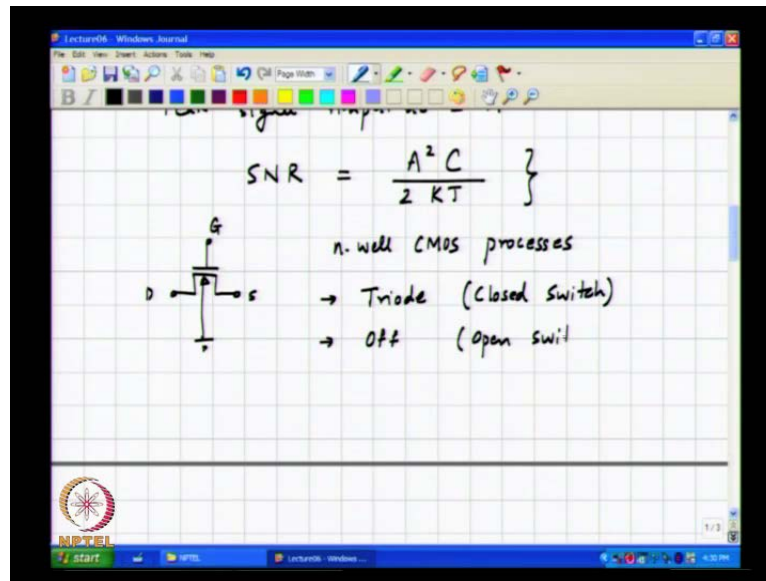 Lecture06 - Windows Journal
File Edit View Insert Actions Tools Help
Page Width
B I
SNR = A² C / 2 KT }
G
n-well CMOS processes
D S → Triode (Closed Switch)
→ Off (Open swit
1/3
NPTEL
start NPTEL Lecture06 - Windows ... 4:30 PM